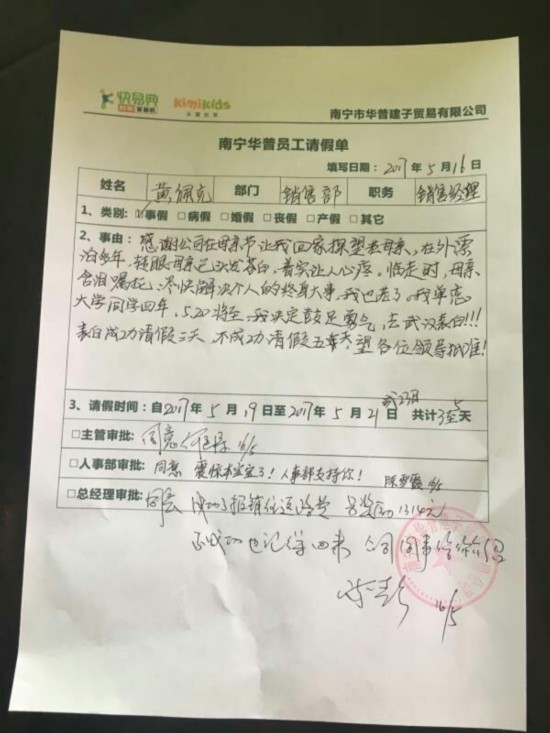 快易典
kimikids
南宁市华普建子贸易有限公司
南宁华普员工请假单
填写日期：2017年5月16日
姓名 黄佩充 部门 销售部 职务 销售经理
1、类别：☑事假 □病假 □婚假 □丧假 □产假 □其它
2、事由：感谢公司在母亲节让我回家探望老母亲，在外漂
泊多年，转眼母亲已头发苍白，着实让人心疼。临走时，母亲
含泪嘱托：尽快解决个人的终身大事。我也老了。我单恋
大学同学四年，5.20将至，我决定鼓足勇气，去武汉表白!!!
表白成功请假三天，不成功请假五天，望各位领导批准！
或23日
3、请假时间：自2017年5月19日至2017年5月21日 共计3至5天
□主管审批：同意 16/5
□人事部审批：同意 震惊本宝宝了！人事部支持你！ 16/5
□总经理审批：同意 成功了报销往返路费 另奖励1314元
不成功也记得回来 公司同事给你介绍
16/5